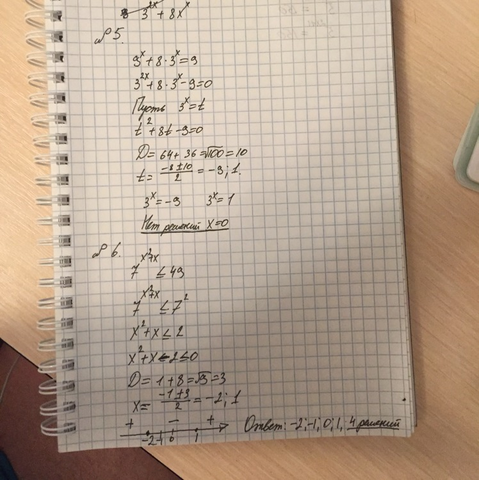 3^2x + 8x^x
№5.
9^x + 8 · 3^x = 9
3^2x + 8 · 3^x - 9 = 0
Пусть 3^x = t
t^2 + 8t - 9 = 0
D = 64 + 36 = √100 = 10
t = (-8 ± 10)/2 = -9; 1.
3^x = -9 3^x = 1
Нет решений x = 0
№6.
7^(x^2+x) ≤ 49
7^(x^2+x) ≤ 7^2
x^2 + x ≤ 2
x^2 + x - 2 ≤ 0
D = 1 + 8 = √9 = 3
x = (-1 ± 3)/2 = -2; 1
+ - +
-2 -1 0 1
Ответ: -2; -1; 0; 1, 4 решений